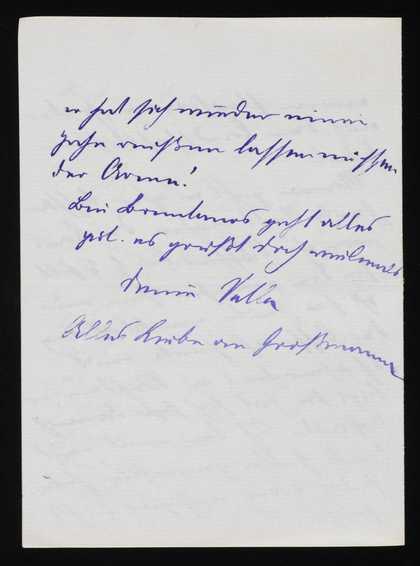 er hat sich wieder einen
Zahn reißen lassen müssen
der Arme!
Bei Brentanos geht alles
gut. es grüßt Dich vielmals
Deine
Alles Liebe an Großmama